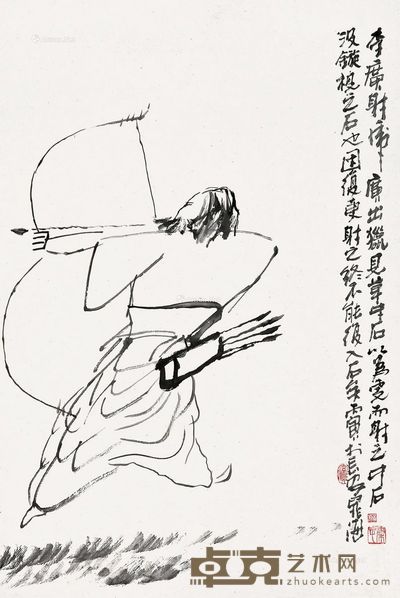 李廣射虎 廣出獵見草中石以為虎而射之中石
沒鏃視之石也因復更射之終不能復入石矣 寅於長安
卓克艺术网
zhuokearts.com